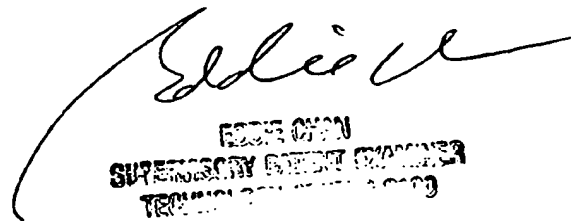 Eddie C
EDDIE CHAN
SUPERVISORY PATENT EXAMINER
TECHNOLOGY CENTER